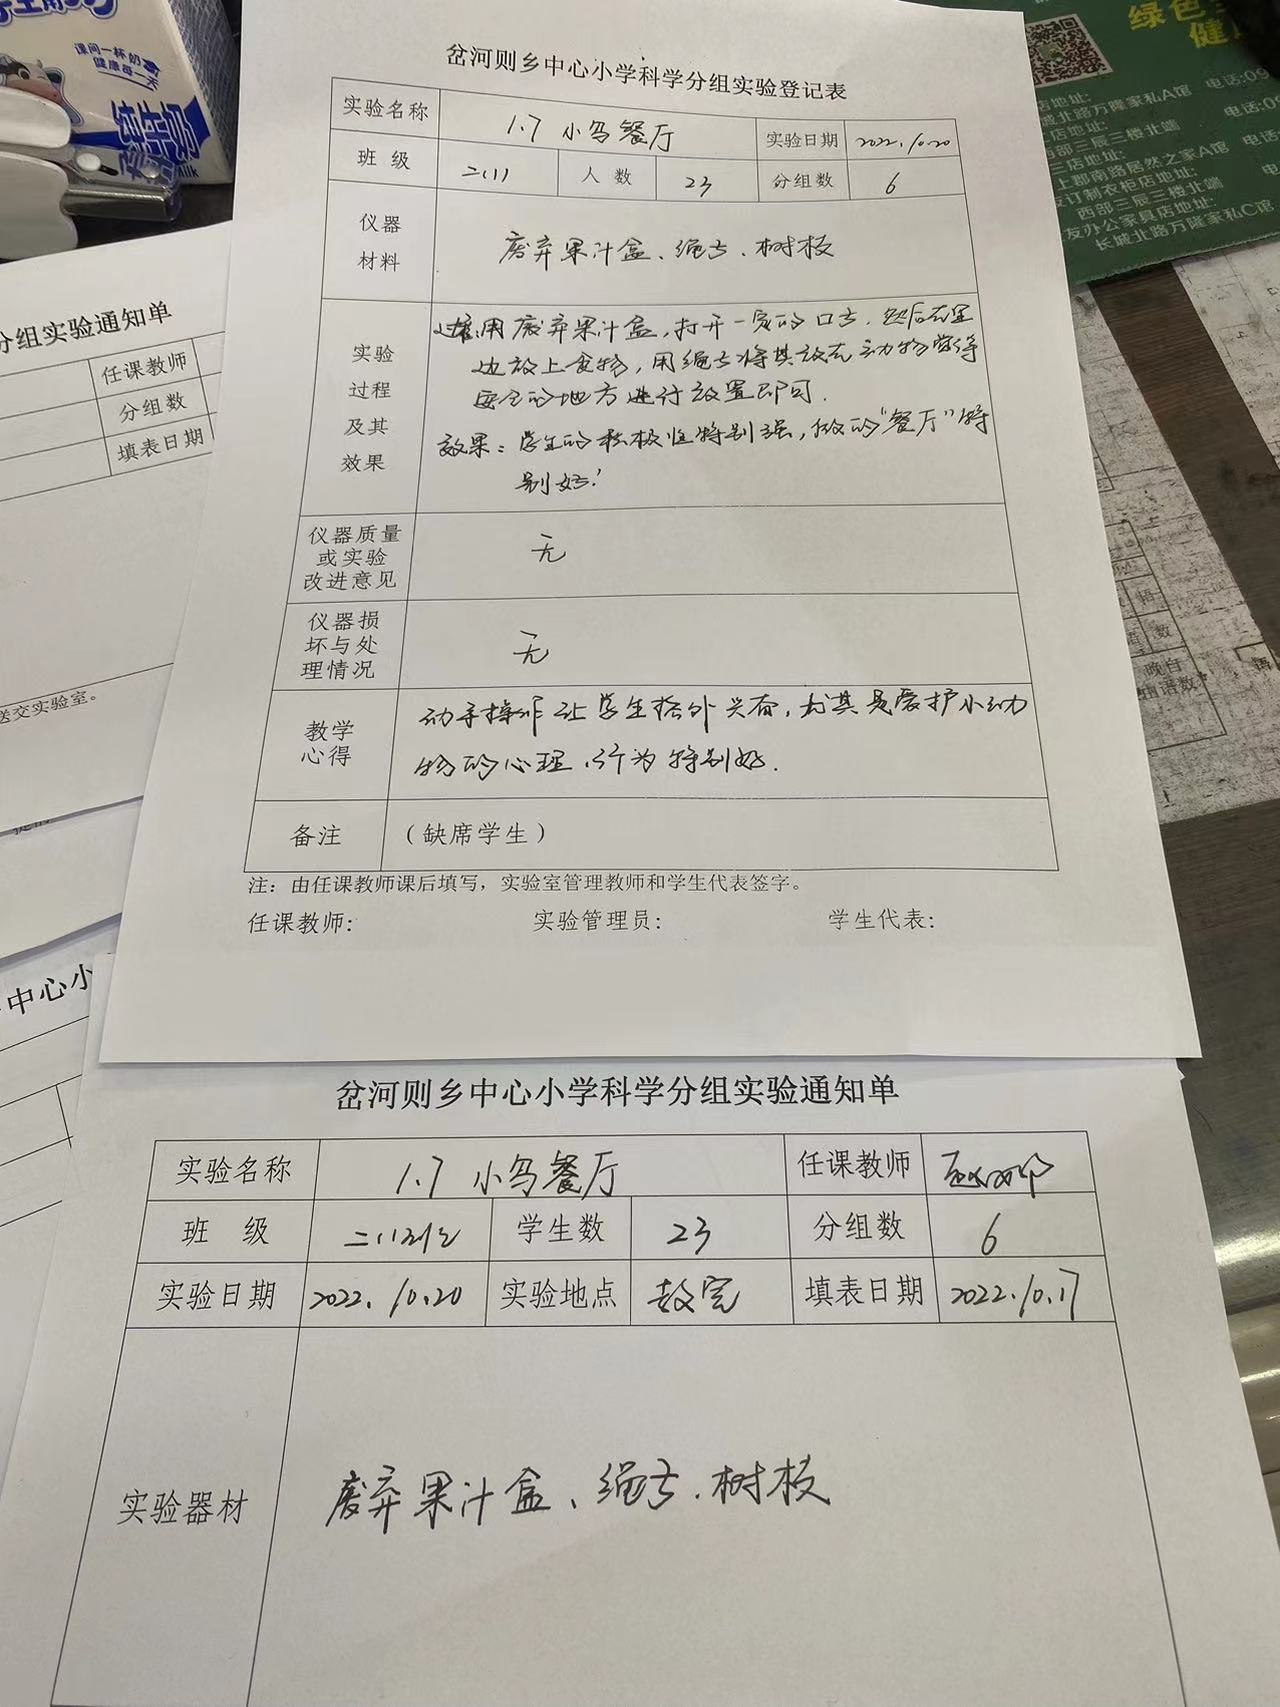 课间一杯奶
健康每一天
绿色
电话:09
店地址:
城北路万隆家私A馆
西部三辰三楼北端
三店地址:
上郡南路居然之家A馆
友订制衣柜店地址:
西部三辰三楼北端
友办公家具店地址:
长城北路万隆家私C馆
岔河则乡中心小学科学分组实验登记表
实验名称 1.7 小鸟餐厅 实验日期 2022.10.20
班 级 二(1) 人 数 23 分组数 6
仪器
材料
废弃果汁盒、绳子、树枝
实验
过程
及其
效果
用废弃果汁盒,打开一定的口子,然后在里
边放上食物,用绳子将其放在动物觉得
安全的地方进行放置即可.
效果:学生的积极性特别强,做的“餐厅”特
别好!
仪器质量
或实验
改进意见
无
仪器损
坏与处
理情况
无
教学
心得
动手操作让学生格外兴奋,尤其是爱护小动
物的心理、行为特别好.
备注 (缺席学生)
注: 由任课教师课后填写, 实验室管理教师和学生代表签字。
任课教师: 实验管理员: 学生代表:
分组实验通知单
任课教师
分组数
填表日期
送交实验室。
中心小
岔河则乡中心小学科学分组实验通知单
实验名称 1.7 小鸟餐厅 任课教师
班 级 学生数 23 分组数 6
实验日期 2022.10.20 实验地点 教室 填表日期 2022.10.17
实验器材 废弃果汁盒、绳子.树枝